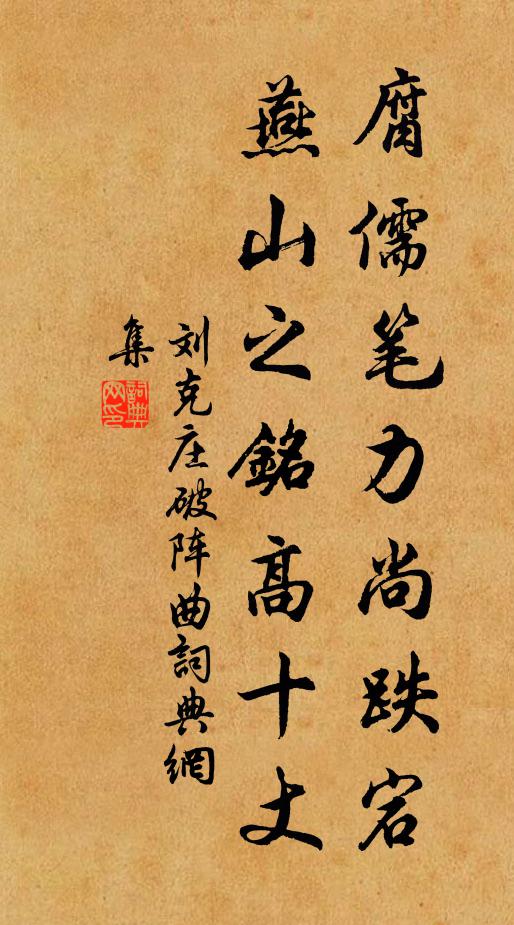 腐儒笔力尚跌宕
燕山之銘高十丈
刘克庄破阵曲詞典網
集
詞典網印